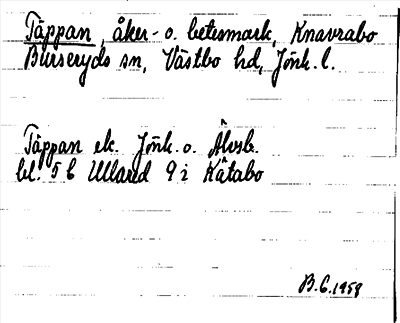 Täppan, åker- o. betesmark, Knavrabo
Burseryds sn, Västbo hd, Jönk. l.
Täppan ek. Jönk. o. Älvsb.
bl. 5 6 Ullared 9 i Kåtabo
B.G. 1958